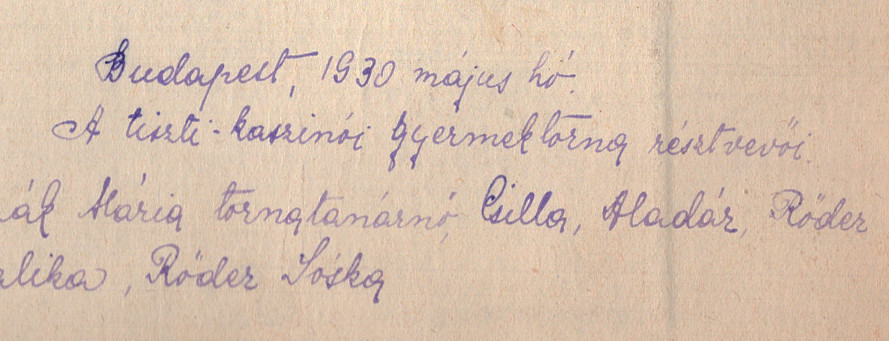 Budapest, 1930 május hó.
A tiszti-kaszinói gyermektorna résztvevői.
ák Mária tornatanárnő, Csilla, Aladár, Rőder
alika, Rőder Jóska